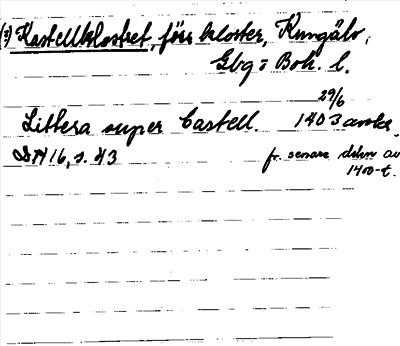 (?) Kastellklostret, förr kloster, Kungälv,
Gbg o Boh. l.
29/6
Littera super Castell. 1403 avskr.
DN 16, s. 43 fr. senare delen av
1400-t.